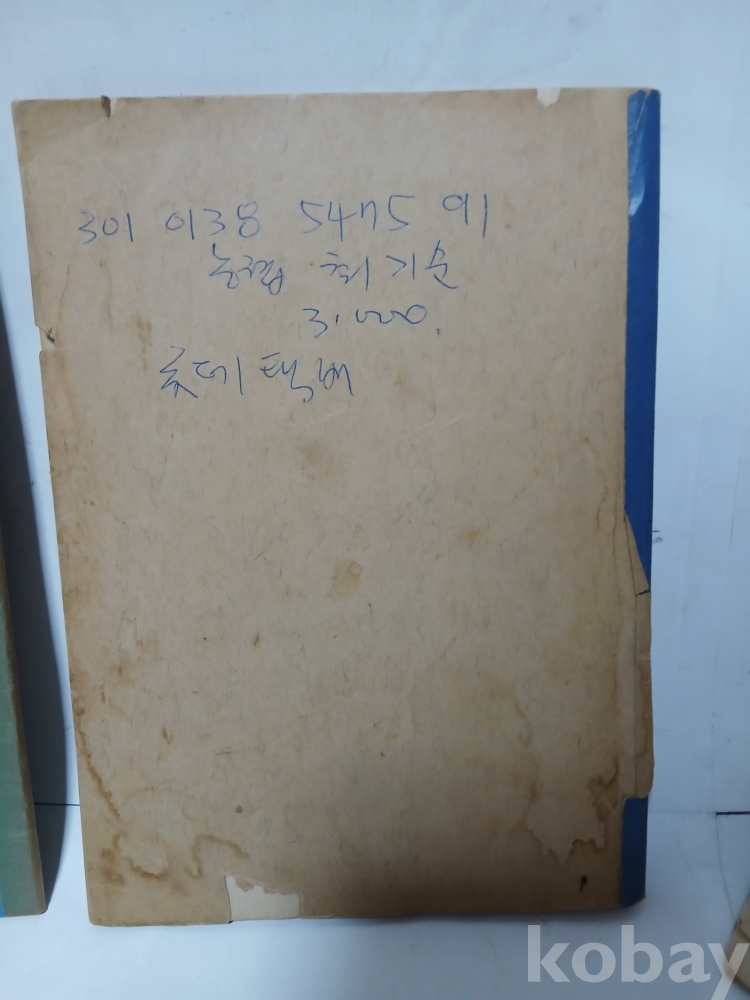 301 0138 5475 91
농협 최기순
3.000.
롯데택배
kobay